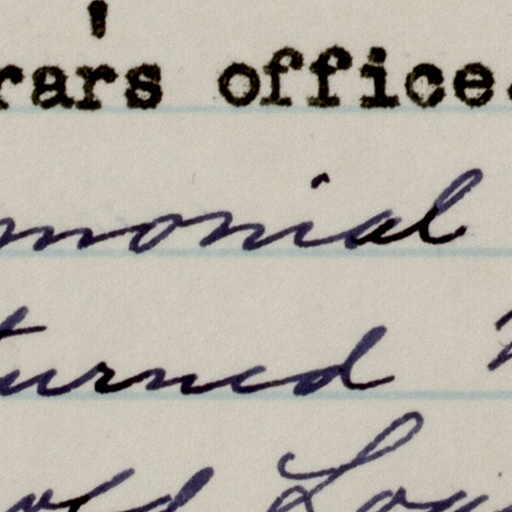 rar's office.
monial
turned
Loa